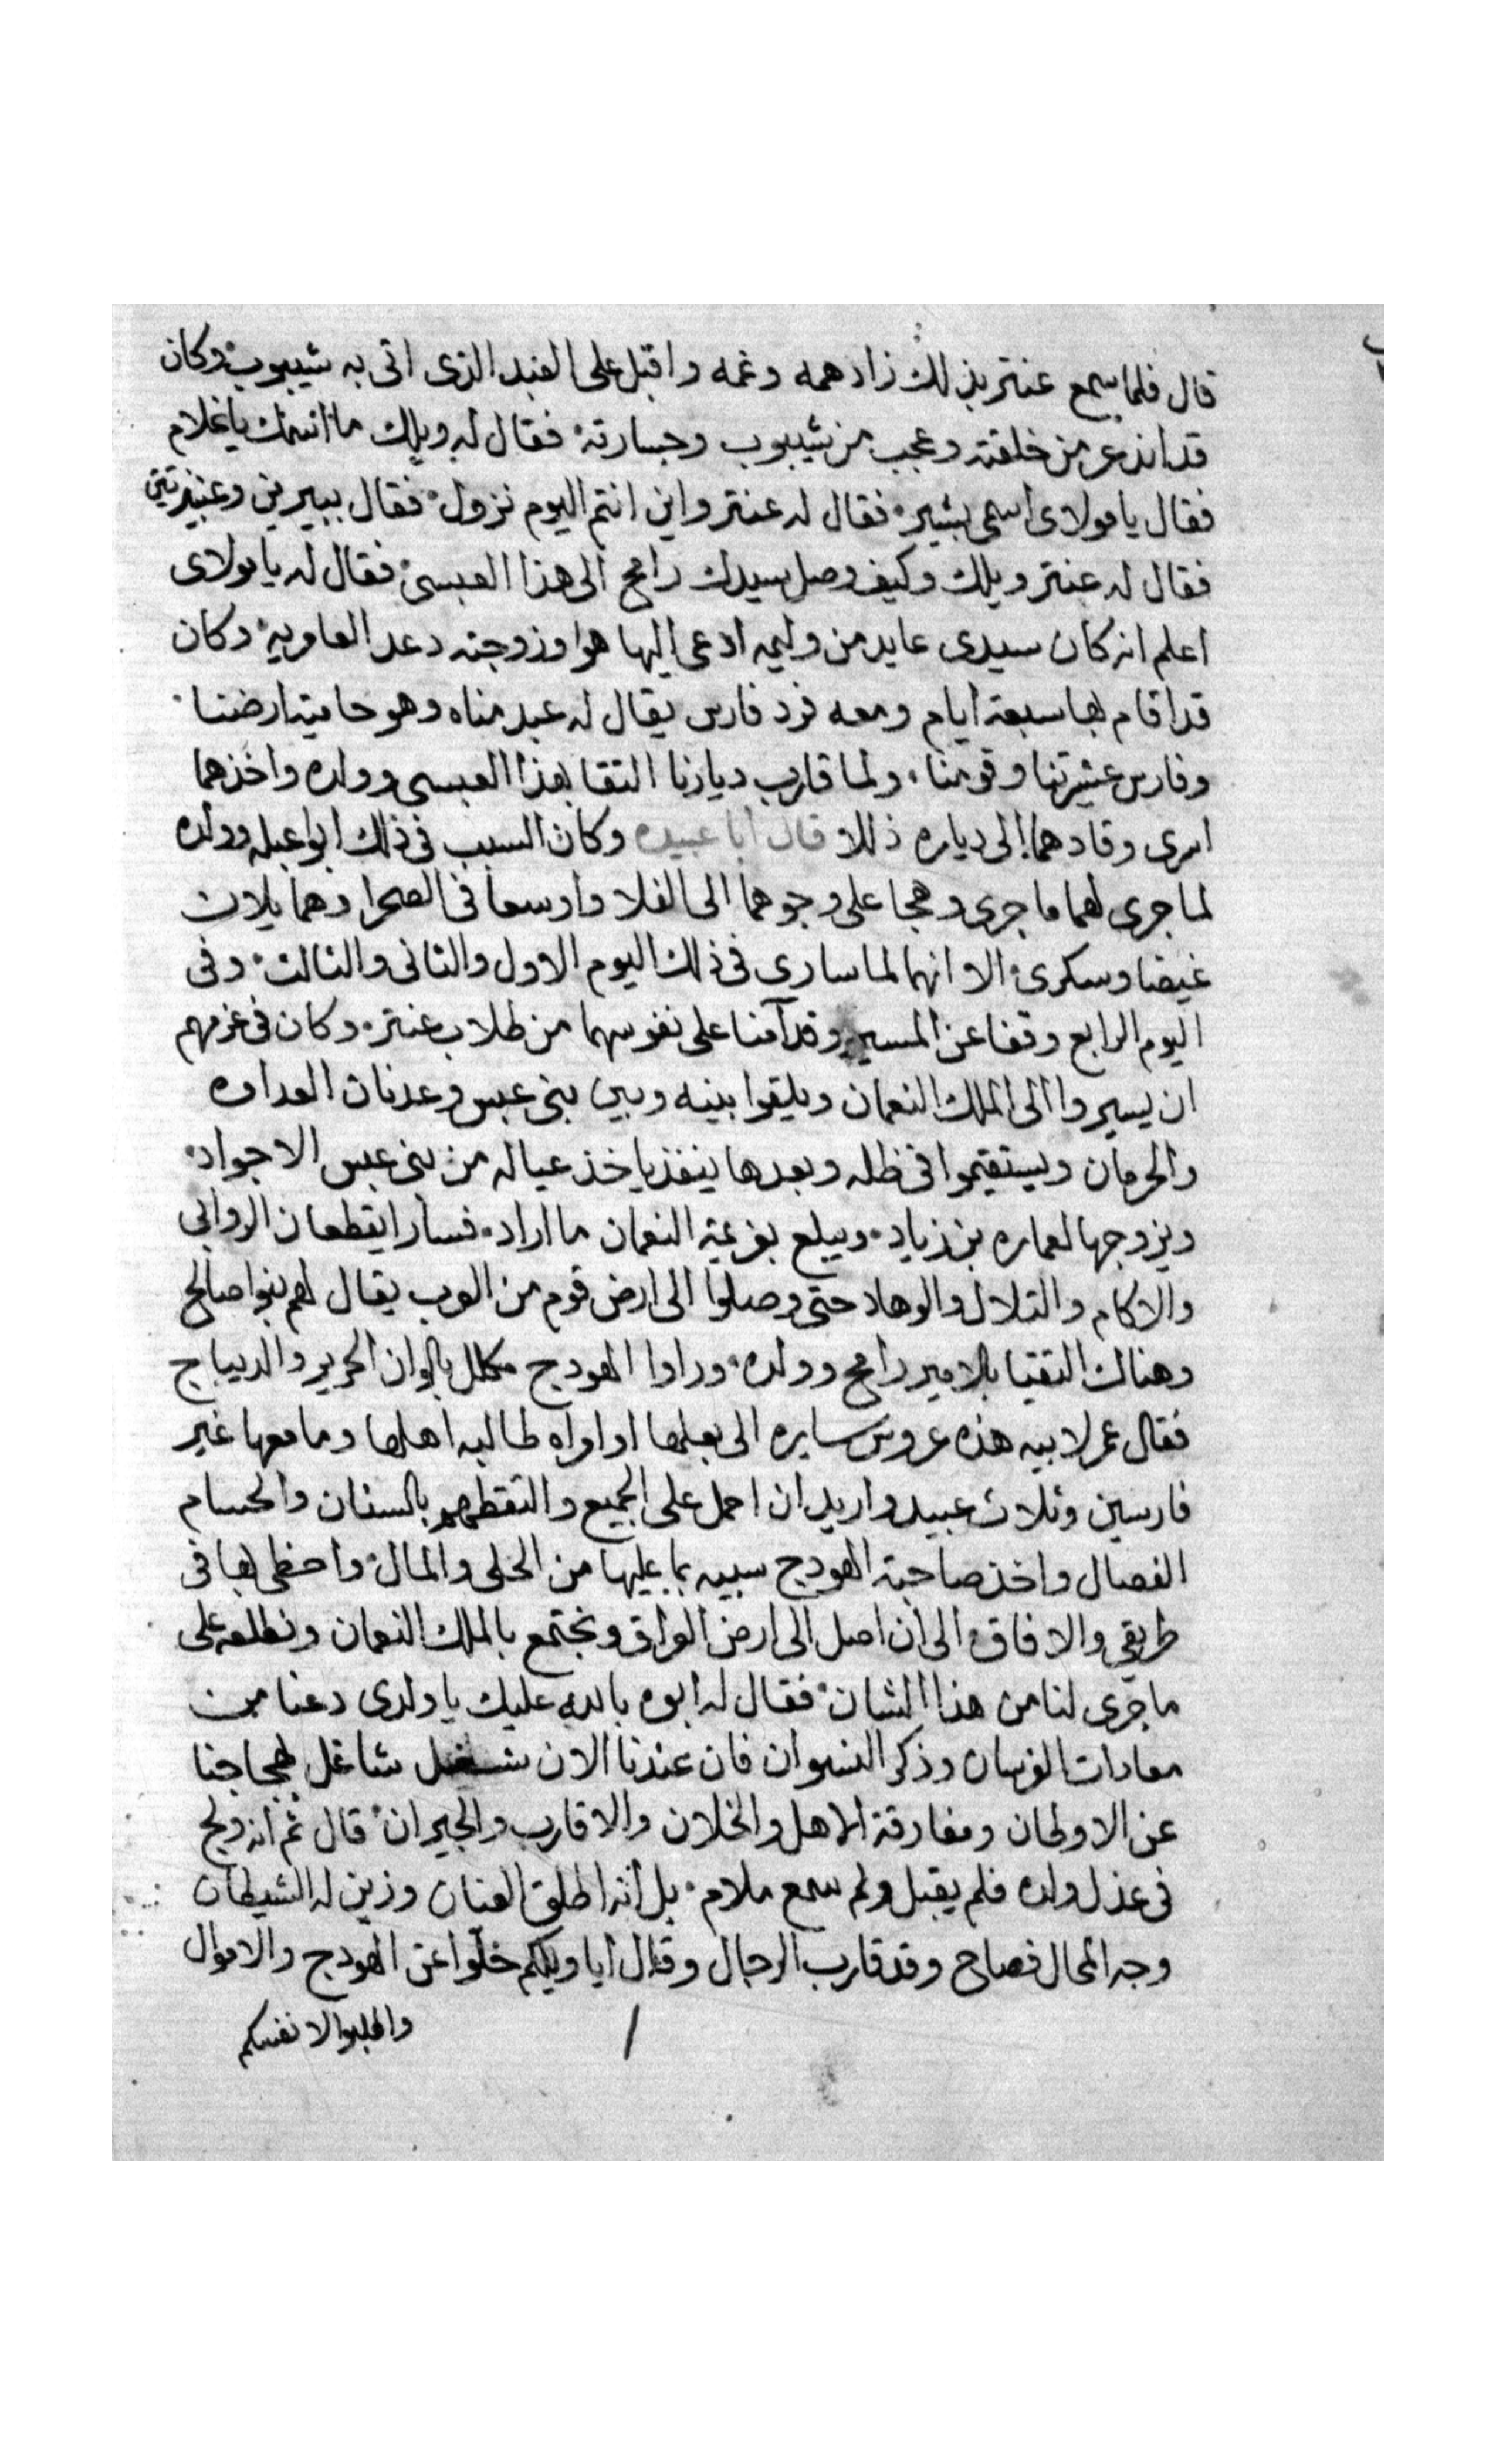 قال فلما سمع عنتر بذلك زاد همه وغمه واقبل على العبد الذى اتى به شيبوب وكان
قد انذعر من خلقته وعجب من شيبوب وجسارته فقال له ويلك ما اسمك ياغلام
فقال يا مولاى اسمى بشير فقال له عنتر واين انتم اليوم نزول فقال ببيرين وعنيزتين
فقال له عنتر ويلك وكيف وصل سيدك رامح الى هذا العبسى فقال له يا مولاى
اعلم انه كان سيدى عايد من وليمه ادعى اليها هوا وزوجته دعد العامريه وكان
قد اقام بها سبعة ايام ومعه فرد فارس يقال له عبد مناه وهو حامية ارضنا
وفارس عشيرتنا وقومنا ولما قارب ديارنا التقا بهذا العبسى وولده واخذهما
اسرى وقادهما الى دياره ذللا قال ابا عبيده وكان السبب فى ذلك ابوا عبله وولده
لما جرى لهما ما جرى وهجا على وجوهما الى الفلا واوسعا فى الصحرا وهما يلان
غيضا وسكرى الا انهما لما سارى فى ذلك اليوم الاول والثانى والثالث وفى
اليوم الرابع وقفا عن المسير وقد آمنا على نفوسهما من طلاب عنتر وكان فى عزمهم
ان يسيروا الى الملك النعمان ويلقوا بينه وبين بنى عبس وعدنان العداوه
والحرمان ويستقيموا فى ظله وبعدها ينفذ ياخذ عياله من بنى عبس الاجواد
ويزوجها لعماره بن زياد ويبلع بعزيمة النعمان ما اراد فسارا يقطعان الروابى
والاكام والتلال والوهاد حتى وصلوا الى ارض قوم من العرب يقال لهم بنوا صالح
وهناك التقيا بالامير رامح وولده وراوا الهودج مكلل بالوان الحرير والديباج
فقال عمر لابيه هذه عروس سايره الى بعلها او امراه طالبه اهلها وما معها غير
فارسين وثلاث عبيد واريد ان احمل على الجميع والتقطهم بالسنان والحسام
الفصال واخذ صاحبة الهودج سبيه بما عليها من الحلى والمال واحظى بها فى
طريقى والافاق الى ان اصل الى ارض العراق ونجتمع بالملك النعمان ونطلعه على
ما جرى لنا من هذا الشان فقال له ابوه بالله عليك يا ولدى دعنا من
معادات الفرسان وذكر النسوان فان عندنا الان شغل شاغل لهجاجنا
عن الاوطان ومفارقة الاهل والخلان والاقارب والجيران قال ثم انه ولج
فى عذل ولده فلم يقبل ولم سمع ملام بل انه اطلق العنان وزين له الشيطان
وجه المحال فصاح وقد قارب الرجال وقال ايا ويلكم خلّوا عن الهودج والاموال
واطلبوا لانفسكم